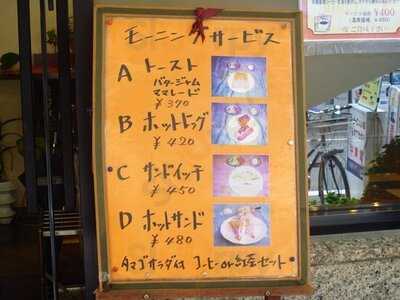 モーニングサービス
A トースト
バタージャム
ママレード
¥390
B ホットドッグ
¥420
C サンドイッチ
¥450
D ホットサンド
¥480
タマゴサラダ
コーヒーor紅茶セット
¥400